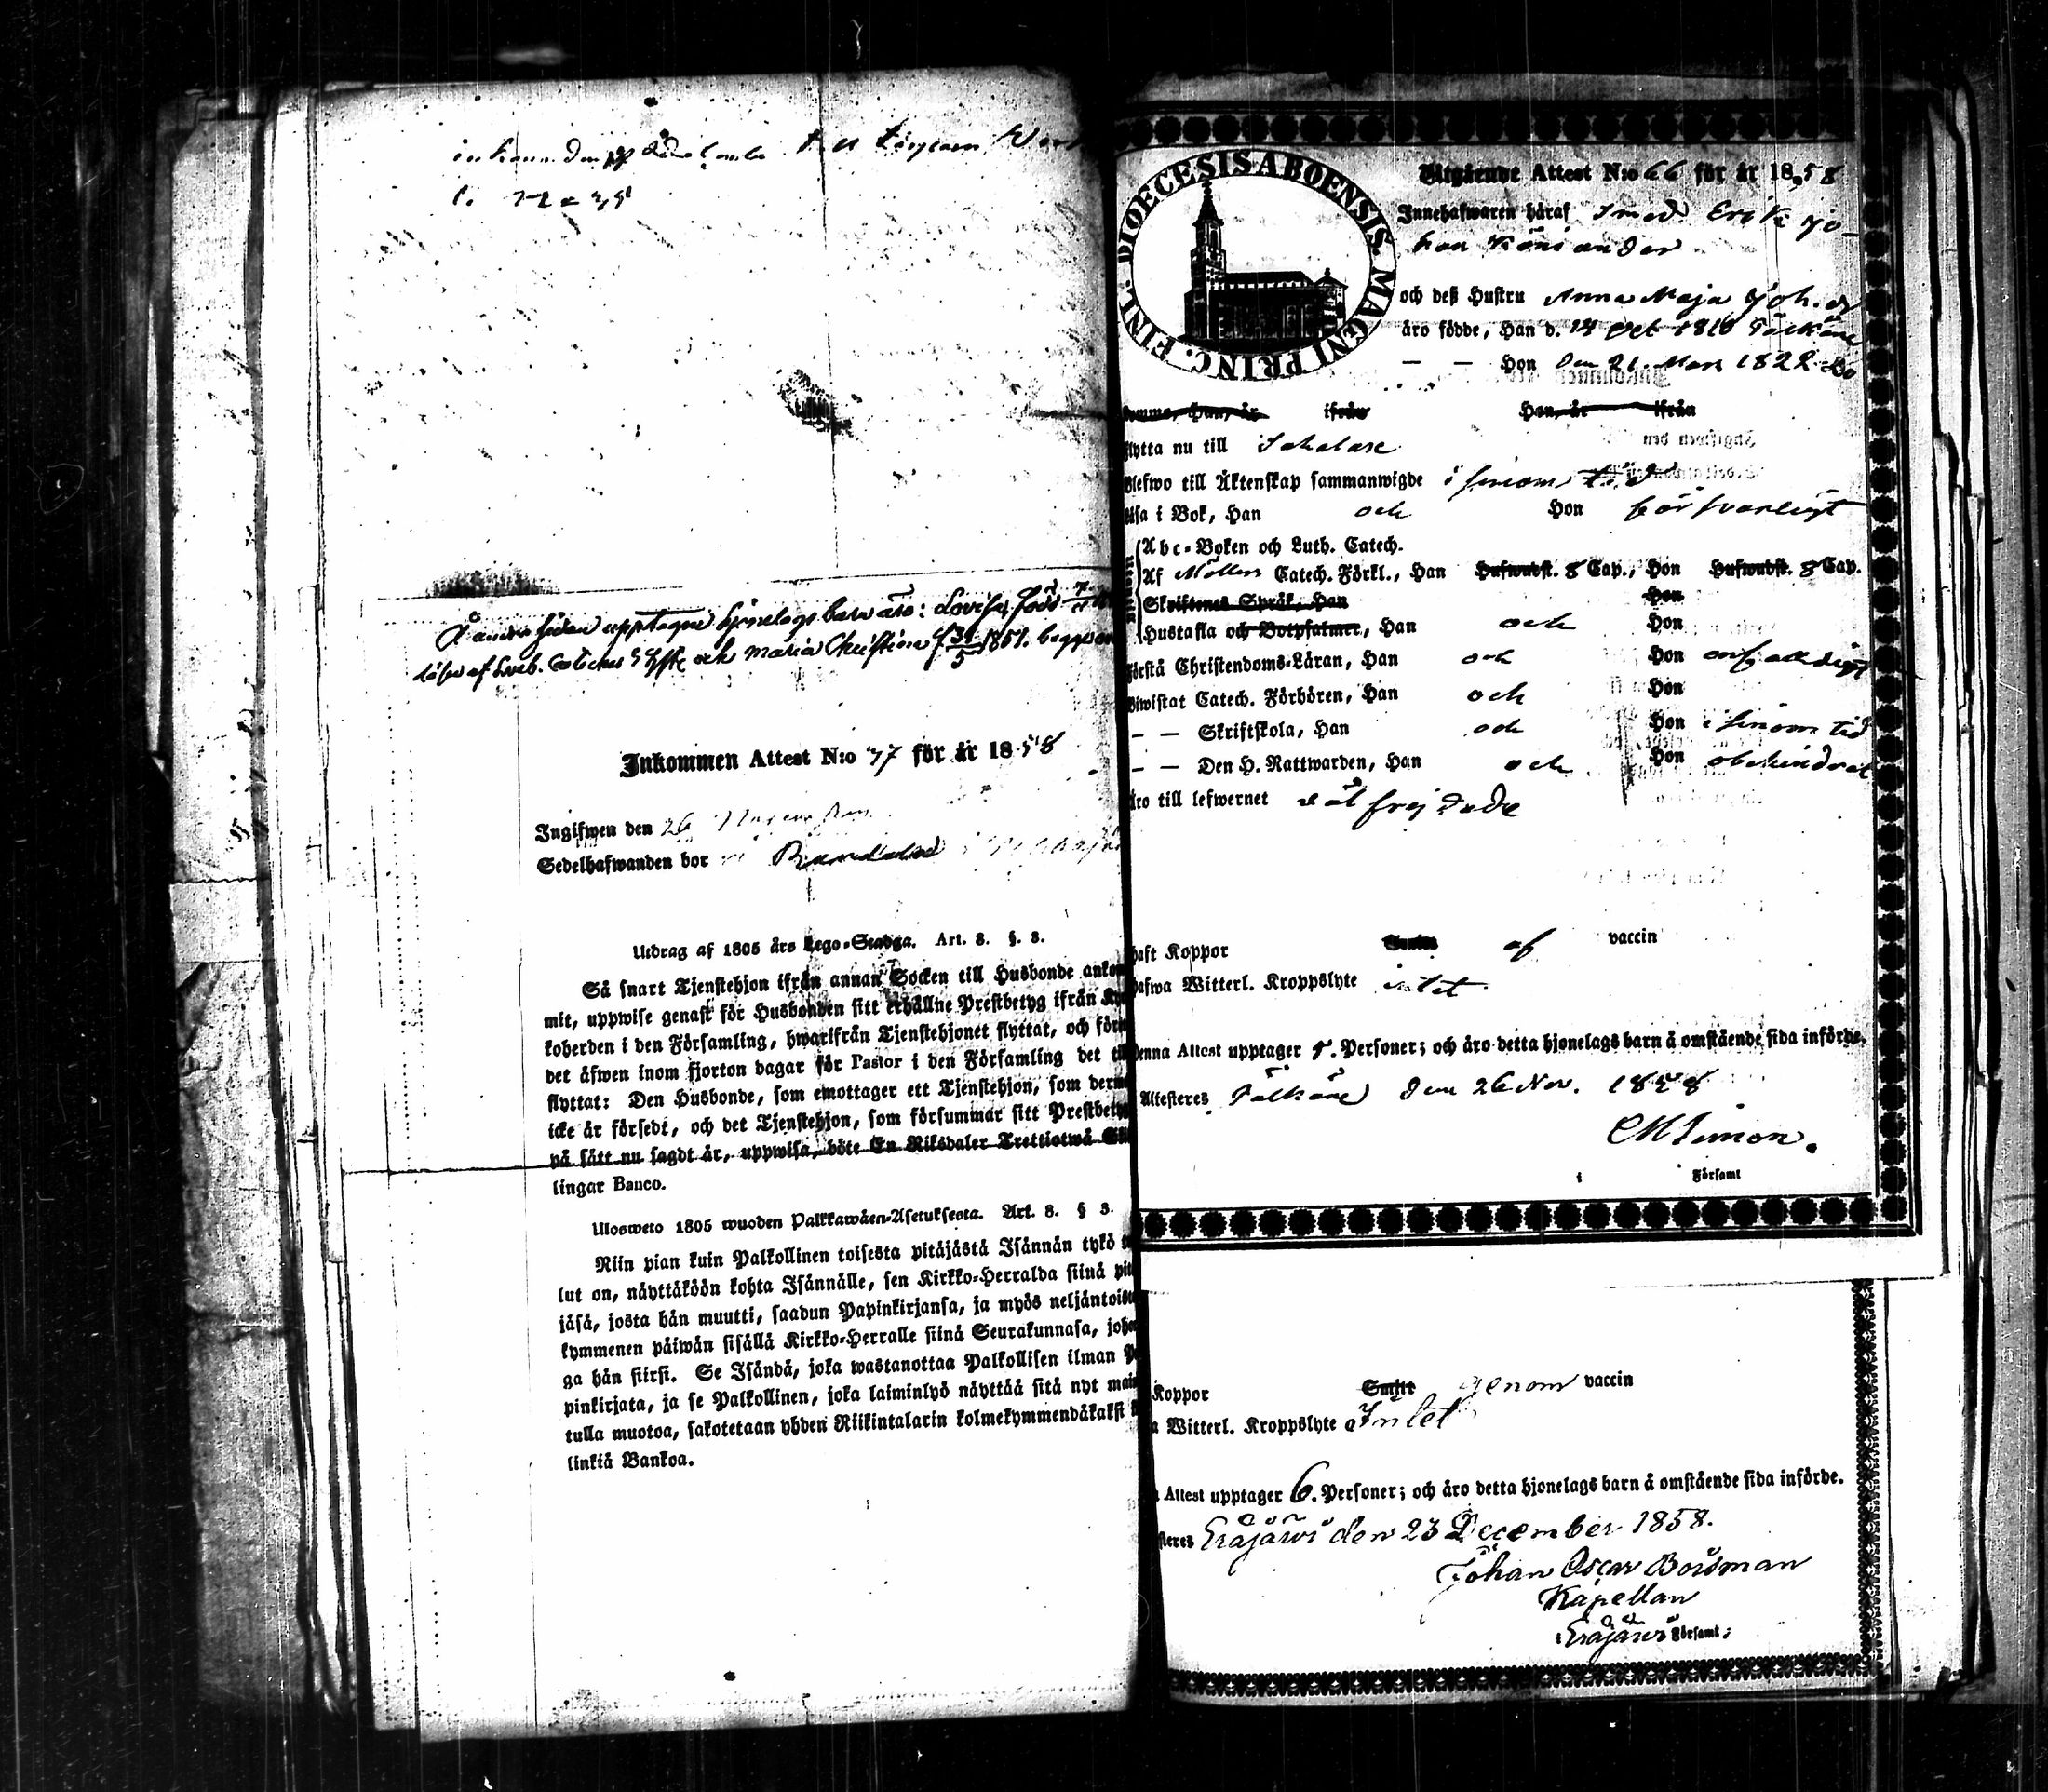 Å andra sidan upptagne hjonelags barn äro: Lovisa, född 7/
läser af Sveb. och Maria Christina f 31/5 1851. begge
Inkommen Attest N:o 77 för år 1858
Ingifwen den 26
Sedelhafwanden bor
Utdrag af 1805 års Lego-Stadga. Art. 3. §. 3.
Så snart Tjenstehjon ifrån annan Socken till Husbonde ankom
mit, uppwise genast för Husbonden sitt erhållne Prestbetyg ifrån Kyr
koherden i den Församling, hwarifrån Tjenstehjonet flyttat, och förm
det äfwen inom fjorton dagar för Pastor i den Församling det till
flyttat: Den Husbonde, som emottager ett Tjenstehjon, som derm
icke är försedt, och det Tjenstehjon, som försummar sitt Prestbetyg
på sätt nu sagdt är, uppwisa, böte En Riksdaler Trettiotwå Skil
lingar Banco.
Ulosweto 1805 wuoden Palkkawäen-Asetuksesta. Art. 3. § 3.
Niin pian kuin Palkollinen toisesta pitäjästä Isännän tykö
lut on, näyttäköön kohta Isännälle, sen Kirkko-Herralda siinä pit
jäsä, josta hän muutti, saadun Papinkirjansa, ja myös neljäntois
kymmenen päiwän sisällä Kirkko-Herralle siinä Seurakunnasa, johon
ga hän siirsi. Se Isändä, joka wastanottaa Palkollisen ilman Pa
pinkirjata, ja se Palkollinen, joka laiminlyö näyttää sitä nyt mai
tulla muotoa, sakotetaan yhden Riikintalarin kolmekymmendäkaksi
linkiä Bankoa.
FINL. DIOECESIS ABOENSIS. MAGNI PRINC.
Utgående Attest N:o 66 för år 1858
Innehafwaren häraf Smed Erik Jo-
han
och deß Hustru Anna Maja Joh. dr
äro födde, Han d. 14 Oct 1810 Pälkäne
— — Hon den 21 Mars 1822 do
komma, Han, år ifrån Hon, år ifrån
flytta nu till Sahalax
Blefwo till Äktenskap sammanwigde i sinom tid
läsa i Bok, Han och Hon försvarligt
Abc-Boken och Luth. Catech.
Af Möllers Catech. Förkl., Han Hufwudst. 8 Cap., Hon Hufwudst. 8 Cap.
Skriftenes Språk, Han Hon
Hustafla och Botpsalmer, Han och Hon
Förstå Christendoms-Läran, Han och Hon enfaldigt
Biwistat Catech. Förhören, Han och Hon
— — Skriftskola, Han och Hon i sinom tid
— — Den H. Nattwarden, Han och Hon obehindrat
Äro till lefwernet väl frejdade
haft Koppor af vaccin
hafwa Witterl. Kroppslyte intet
Denna Attest upptager 5. Personer; och äro detta hjonelags barn å omstående sida införde.
Attesteres Pälkäne den 26 Nov. 1858
CM Simon.
i Församl
Koppor Smitt genom vaccin
a Witterl. Kroppslyte Intet
a Attest upptager 6. Personer; och äro detta hjonelags barn å omstående sida införde.
steres Eräjärvi den 23 December 1858.
Johan Oscar Boisman
Kapellan
i Eräjärvi Församl;